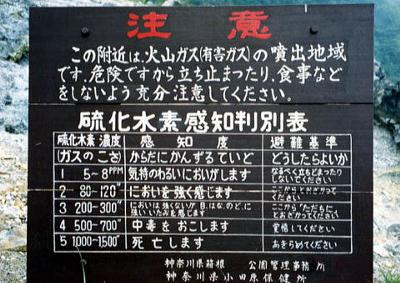 注意
この附近は、火山ガス(有害ガス)の噴出地域
です。危険ですから立ち止まったり、食事など
をしないよう充分注意してください。
硫化水素感知判別表
硫化水素濃度 感知度 避難基準
(ガスのこさ) からだにかんずるていど どうしたらよいか
1 5~8PPM 気持のわるいにおいがします なるべく立ちどまったりしないでください
2 80~120〃 においを強く感じます ここからとおざかってください
3 200~300〃 においは強くないが、目、はな、のど、に強いいたみを感じます ここから“ただちに”とおざかってください
4 500~700〃 中毒をおこします 覚悟してください
5 1000~1500〃 死亡します あきらめてください
神奈川県箱根 公園管理事務所
神奈川県小田原保健所